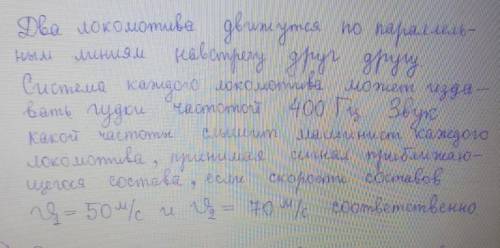 Два локомотива движутся по параллель-
ным линиям навстречу друг другу
Система каждого локомотива может изда-
вать гудки частотой 400 Гц Звук
какой частоты слышит машинист каждого
локомотива, принимая сигнал приближаю-
щегося состава, если скорости составов
ϑ₁ = 50 м/с и ϑ₂ = 70 м/с соответственно